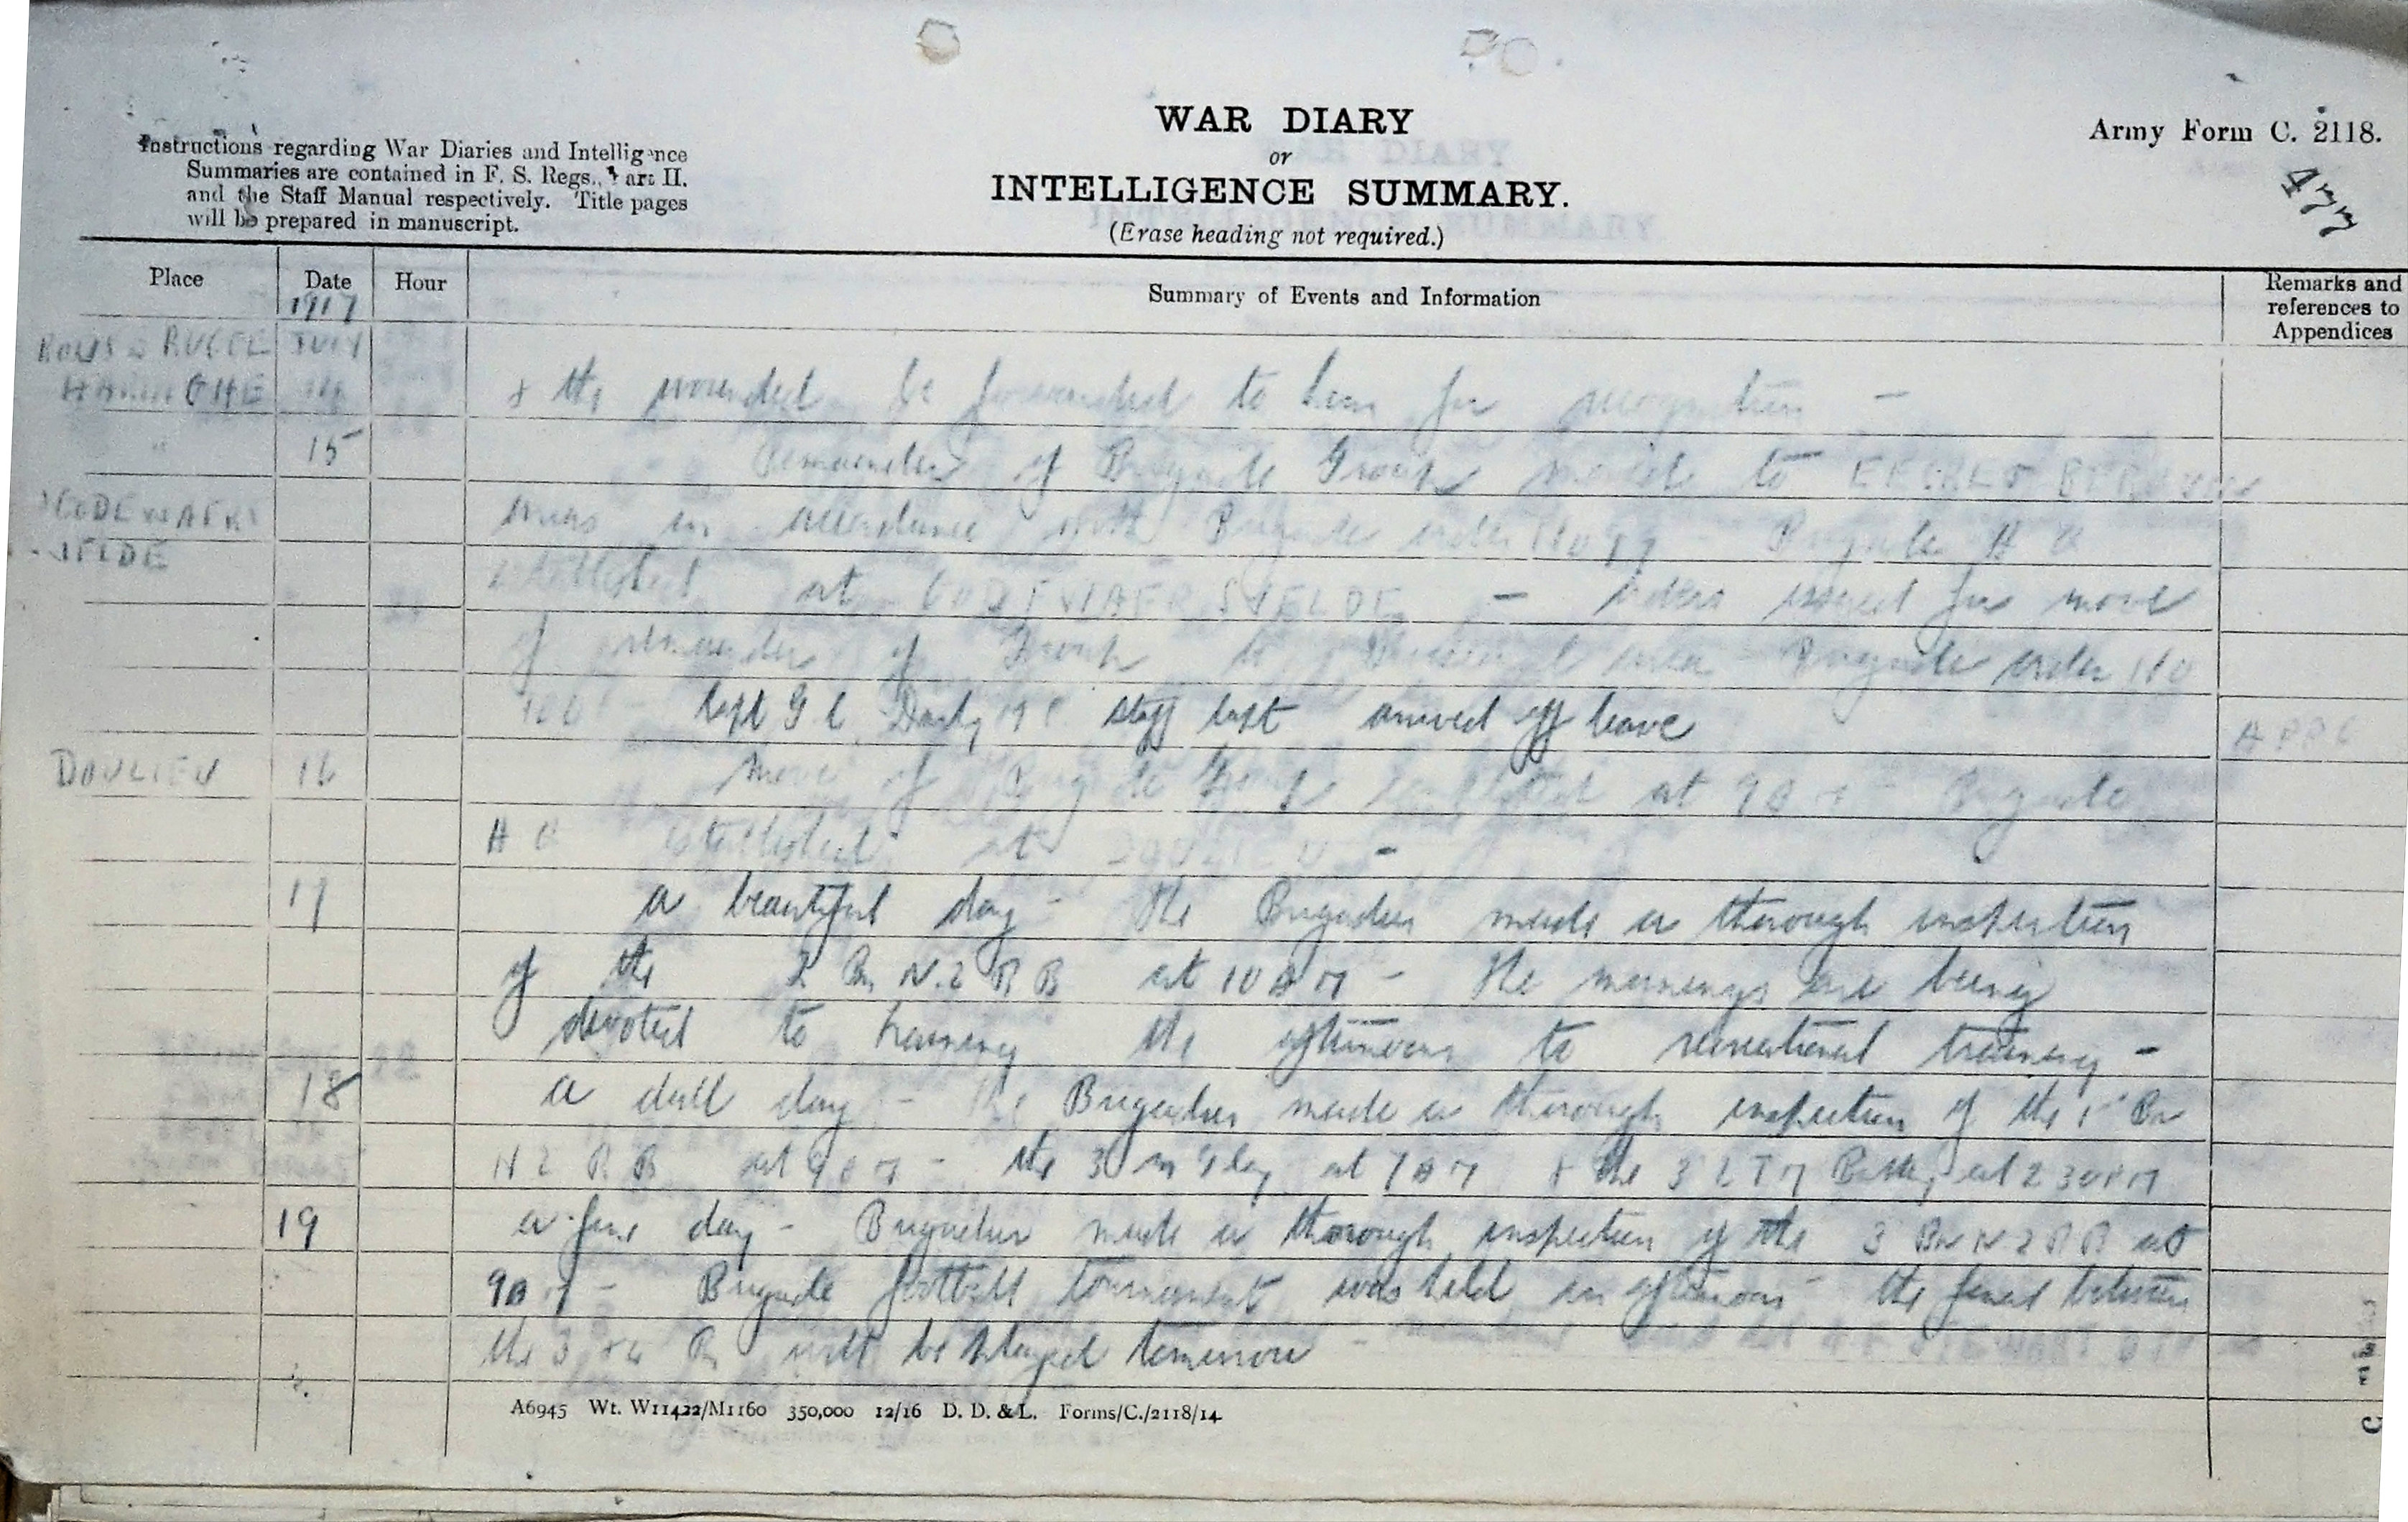 WAR DIARY
or
INTELLIGENCE SUMMARY.
(Erase heading not required.)
Army Form C. 2118.
477
Instructions regarding War Diaries and Intelligence
Summaries are contained in F. S. Regs., Part II.
and the Staff Manual respectively. Title pages
will be prepared in manuscript.
Place Date Hour Summary of Events and Information Remarks and
references to
Appendices
1917
July
14 & the wounded be forwarded to him for recognition -
" 15 Remainder of Brigade Group moved to
area in accordance with Brigade order No 99 - Brigade H Q
established at GODEWAERSVELDE - orders issued for move
of remainder of Group to area Brigade order No
100 - Capt G C staff capt arrived off leave
DOULIEU 16 Move of Brigade Group completed at 9 A M - Brigade
H Q established at DOULIEU -
17 a beautiful day - the Brigadier made a thorough inspection
of the 2 Bn N.Z R B at 10 A M - The mornings are being
devoted to training the afternoons to recreational training -
18 a dull day - the Brigadier made a thorough inspection of the 1 Bn
N Z R B at 9 A M - the 3 M G Coy at 7 A M & the 3 L T M Batty at 2 30 P M
19 a fine day - Brigadier made a thorough inspection of the 3 Bn N.Z R B at
9 A M - Brigade football tournament was held in afternoon - the final between
the 3 & 4 Bn will be played tomorrow
A6945 Wt. W11422/M1160 350,000 12/16 D. D. & L. Forms/C./2118/14